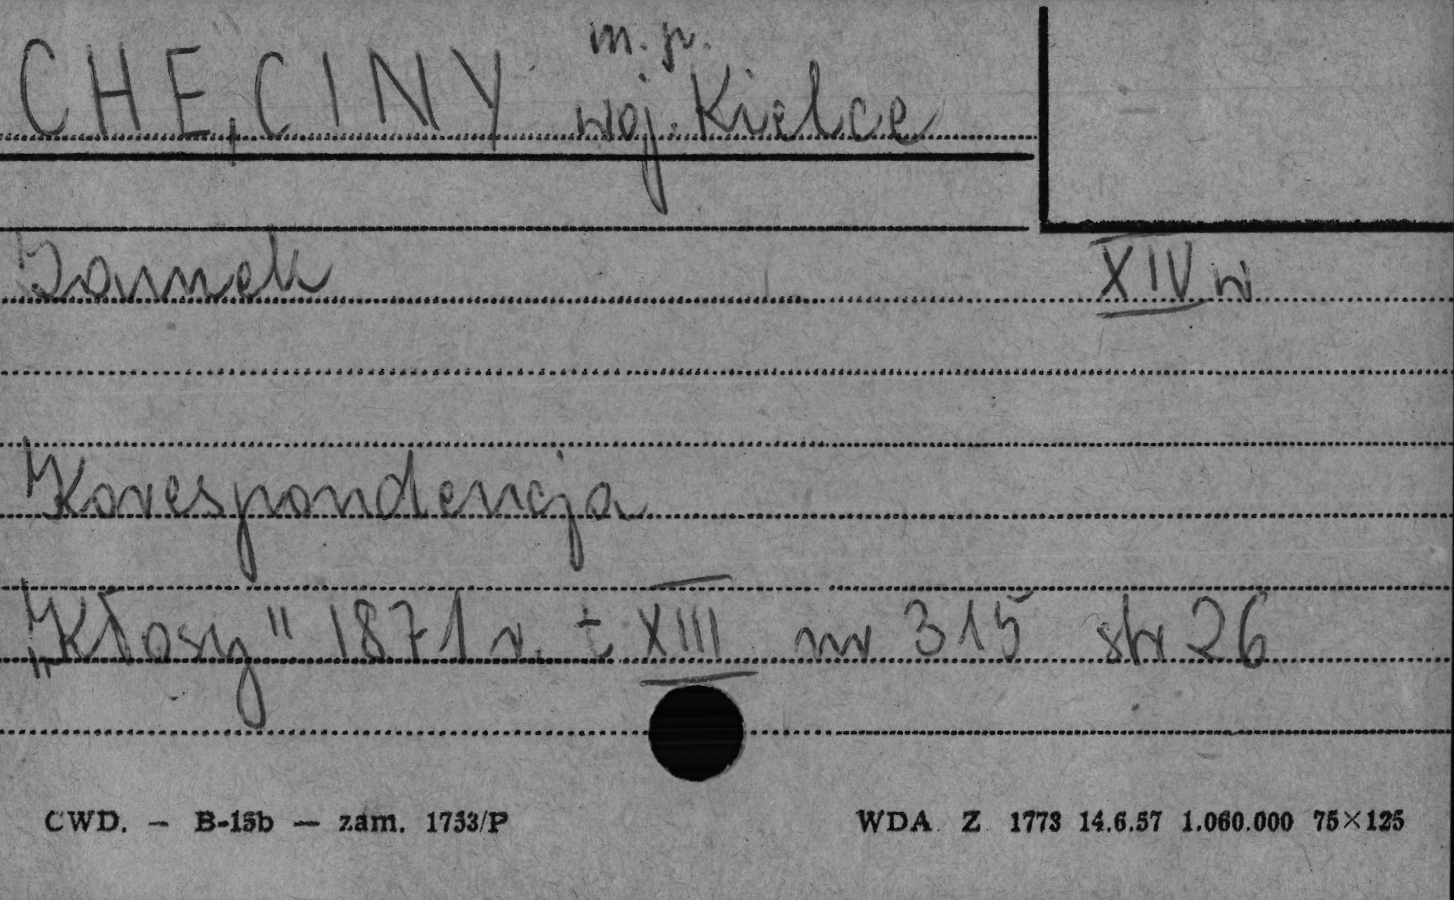 CHĘCINY m. p.
woj. Kielce
Zamek XIV w
Korespondencja
„Kłosy" 1871 r. t XIII nr 315 str 26
CWD. — B-15b — zam. 1753/P WDA Z 1773 14.6.57 1.060.000 75×125